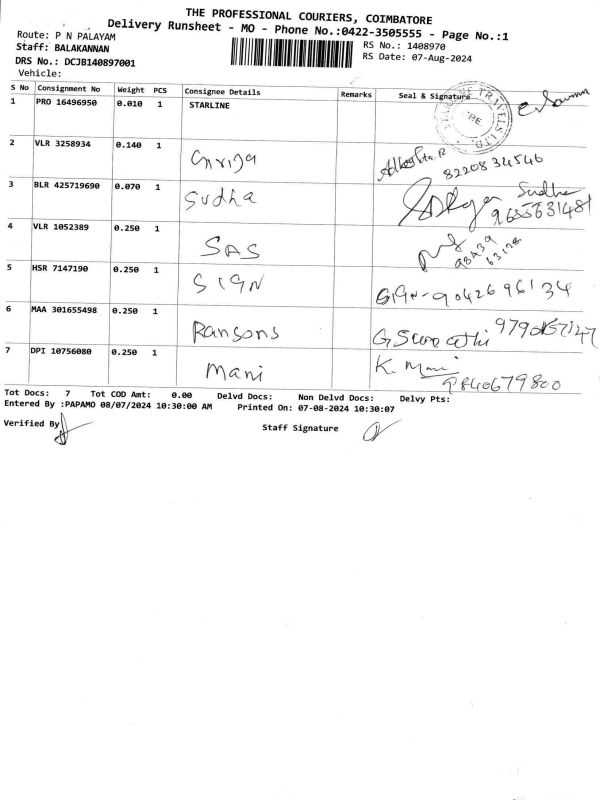 THE PROFESSIONAL COURIERS, COIMBATORE
Delivery Runsheet - MO - Phone No.:0422-3505555 - Page No.:1
Route: P N PALAYAM
Staff: BALAKANNAN
DRS No.: DCJB140897001
Vehicle:
RS No.: 1408970
RS Date: 07-Aug-2024
S No Consignment No Weight PCS Consignee Details Remarks Seal & Signature
1 PRO 16496950 0.010 1 STARLINE
2 VLR 3258934 0.140 1 8220834546
3 BLR 425719690 0.070 1 Sudha Sudha 9655631481
4 VLR 1052389 0.250 1 SAS
5 HSR 7147190 0.250 1 SIGN SIGN-9042696134
6 MAA 301655498 0.250 1 Ransons
7 DPI 10756080 0.250 1 Mani K. Mani 9840679800
Tot Docs: 7 Tot COD Amt: 0.00 Delvd Docs: Non Delvd Docs: Delvy Pts:
Entered By :PAPAMO 08/07/2024 10:30:00 AM Printed On: 07-08-2024 10:30:07
Verified By
Staff Signature